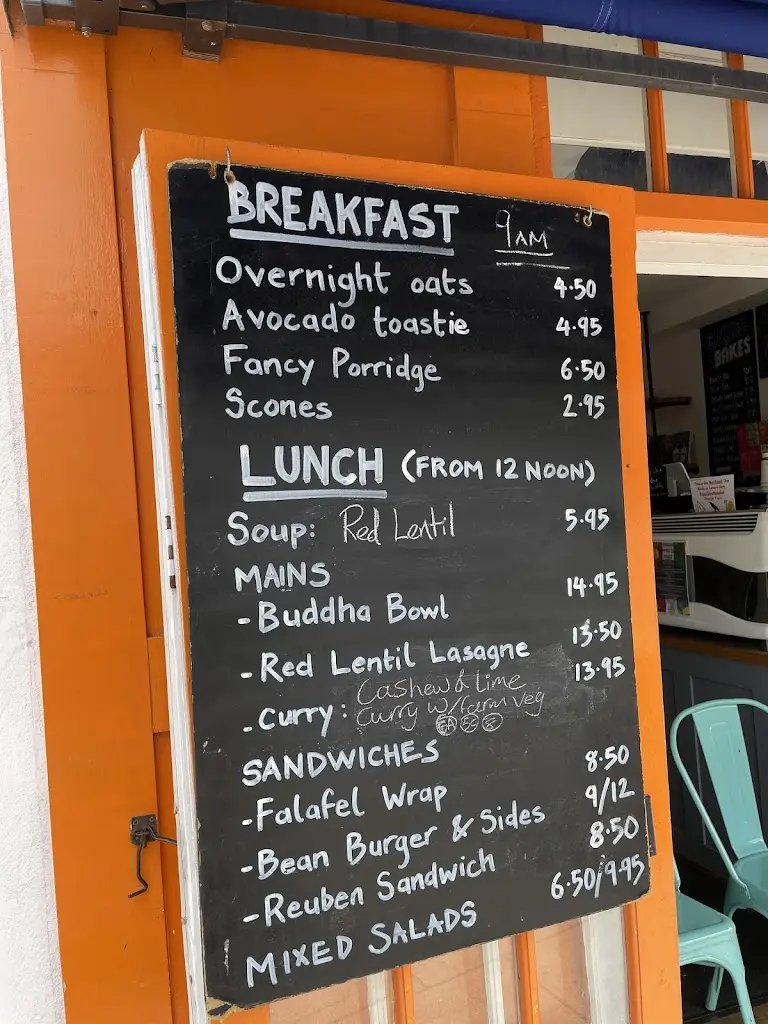 BREAKFAST 9AM
Overnight oats 4.50
Avocado toastie 4.95
Fancy Porridge 6.50
Scones 2.95
LUNCH (FROM 12 NOON)
Soup: Red Lentil 5.95
MAINS
- Buddha Bowl 14.95
- Red Lentil Lasagne 13.50
- Curry: Cashew & Lime 13.95
Curry w/ farm veg
SANDWICHES
- Falafel Wrap 8.50
- Bean Burger & Sides 9/12
- Reuben Sandwich 8.50
MIXED SALADS 6.50/9.95
BAKES